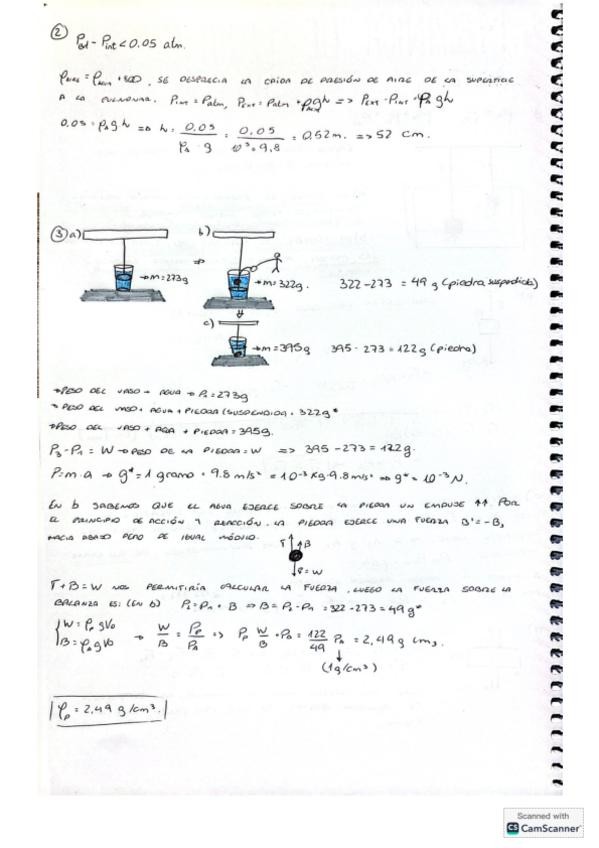 ② Pext - Pint < 0.05 atm.
SE DESPRECIA LA CAIDA DE PRESIÓN DE AIRE DE LA SUPERFICIE
A LA PULMONAR. Pint = Patm, Pext = Patm + ρgh => Pext - Pint = ρgh
0.05 = ρA g h => h = 0.05 / ρA · g = 0,05 / 10³ · 9,8 = 0,52 m. => 52 cm.
③ a) b)
→ m = 273g ⇒ → m = 322g. 322 - 273 = 49 g (piedra suspendida)
c)
→ m = 395g 395 - 273 = 122 g (piedra)
→ PESO DEL VASO + AGUA → P₁ = 273g
→ PESO DEL VASO + AGUA + PIEDRA (SUSPENDIDA) = 322g*
→ PESO DEL VASO + AGUA + PIEDRA = 395g.
P₃ - P₁ = W → PESO DE LA PIEDRA = W => 395 - 273 = 122g.
P = m · a → g* = 1 gramo · 9.8 m/s² = 10⁻³ kg · 9.8 m/s² => g* = 10⁻³ N.
EN b SABEMOS QUE EL AGUA EJERCE SOBRE LA PIEDRA UN EMPUJE ↑↑. POR
EL PRINCIPIO DE ACCIÓN Y REACCIÓN, LA PIEDRA EJERCE UNA FUERZA B' = -B,
HACIA ABAJO PERO DE IGUAL MÓDULO.
T B
P = W
T + B = W NOS PERMITIRÍA CALCULAR LA FUERZA. LUEGO LA FUERZA SOBRE LA
BALANZA ES: (EN b) P₂ = P₁ + B => B = P₂ - P₁ = 322 - 273 = 49 g*
W = ρp g V₀
B = ρA g V₀ → W/B = ρp/ρA => ρp = W/B · ρA = 122/49 ρA = 2,49 g cm³.
(1 g/cm³)
ρp = 2,49 g/cm³.
Scanned with
CS CamScanner